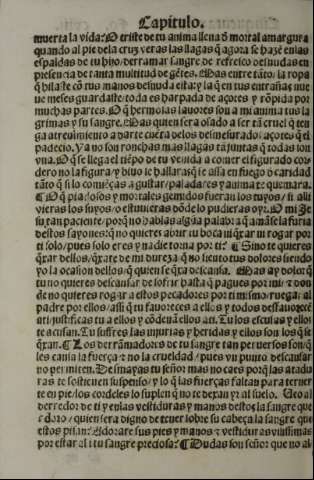 Capitulo.
muerta la vida: O triste de tu anima llena d̃ mortal amargura
quando al pie dela cruz veras las llagas q̃ agora se hazẽ enlas
espaldas de tu hijo: derramar sangre de refresco desnudas en
presencia de tanta multitud de gẽtes. Mas entre tãto: la ropa
q̃ hilaste cõ tus manos desnuda esta: y la q̃ en tus entrañas nue
ue meses guardaste: toda es harpada de açotes y rõpida por
muchas partes. O q̃ hermosas lauores son a mi anima tus la
grimas y su sangre. Mas quien sera osado a ser tã cruel q̃ ten
ga atreuimiento a darte cuẽta delos desmesurados açotes q̃ el
padecio. Ya no son ronchas mas llagas tã juntas q̃ todas son
vna. O q̃ se llega el tiẽpo de tu venida a comer el figurado cor
dero no la figura: y biuo le hallaras q̃ se assa en fuego d̃ caridad
tãto q̃ si comiẽças a gustar/ paladares y anima te quemara.
O q̃ piadosos y mortales gemidos fueran los tuyos/ si alli
vieras los suyos: o estuuieras dõde lo pudieras oyr. O mi Je
su tan paciente: porq̃ no hablas alguna palabra q̃ amãse la furia
destos sayones: no quieres abrir tu boca ni q̃rar ni rogar por
ti solo/ pues solo eres y nadie torna por ti? Si no te quieres
q̃rar dellos/ q̃rate de mi dureza q̃ no siento tus dolores siendo
yo la ocasion dellos: q̃ quien se q̃ra descansa. Mas ay dolor q̃
tu no quieres descansar de sofrir hasta q̃ pagues por mi: & don
de no quieres rogar a estos pecadores por ti mismo/ ruega al
padre por ellos/ assi q̃ tu fauoreces a ellos y todos desfauorecẽ
a ti: justificas tu a ellos y cõdenã ellos a ti. Tu los escusas y ellos
te acusan. Tu suffres las injurias y heridas y ellos son los q̃ se
q̃ran. Los derramadores de tu sangre tan peruersos son/ q̃
les cansa la fuerça & no la crueldad/ pues vn punto descansar
no permiten. Desmayas tu señor mas no caes porq̃ las atadu
ras te sostienen suspenso/ y lo q̃ las fuerças faltan para tener
te en pie/ los cordeles lo suplen q̃ no te dexan yr al suelo. Veo al
derredor de ti y enlas vestiduras y manos destos la sangre que
adoro/ quien sera digno de tener sobre su cabeça la sangre que
estos pisan? Adorare sus pies y manos & vestiduras viuissimas
por estar alli tu sangre preciosa? Dudas son señor que no al